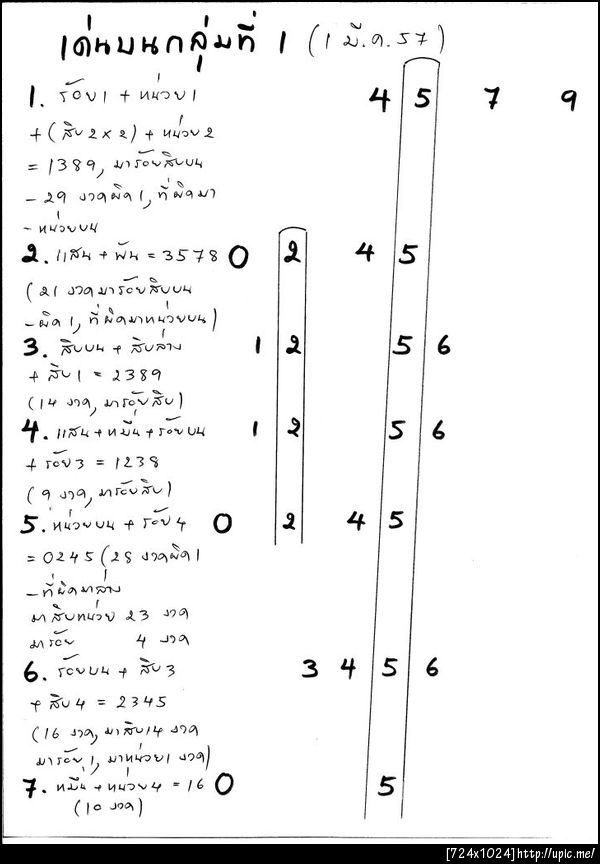 เด่นบนกลุ่มที่ 1 (1 มี.ค.57)
1. ร้อย1 + หน่วย1 4 5 7 9
+ (สิบ2x2) + หน่วย2
= 1389, มาร้อยสิบบน
- 29 งวดผิด1, ที่ผิดมา
- หน่วยบน
2. แสน + พัน = 3578 0 2 4 5
(21 งวดมาร้อยสิบบน
- ผิด1, ที่ผิดมาหน่วยบน)
3. สิบบน + สิบล่าง 1 2 5 6
+ สิบ1 = 2389
(14 งวด, มาร้อยสิบ)
4. แสน+หมื่น+ร้อยบน 1 2 5 6
+ ร้อย3 = 1238
(9 งวด, มาร้อยสิบ)
5. หน่วยบน + ร้อย4 0 2 4 5
= 0245 (28 งวดผิด1
- ที่ผิดมาล่าง
มาสิบหน่วย 23 งวด
มาร้อย 4 งวด
6. ร้อยบน + สิบ3 3 4 5 6
+ สิบ4 = 2345
(16 งวด, มาสิบ14 งวด
มาร้อย1, มาหน่วย1 งวด)
7. หมื่น+หน่วย4 = 16 0 5
(10 งวด)
[724x1024]http://upic.me/